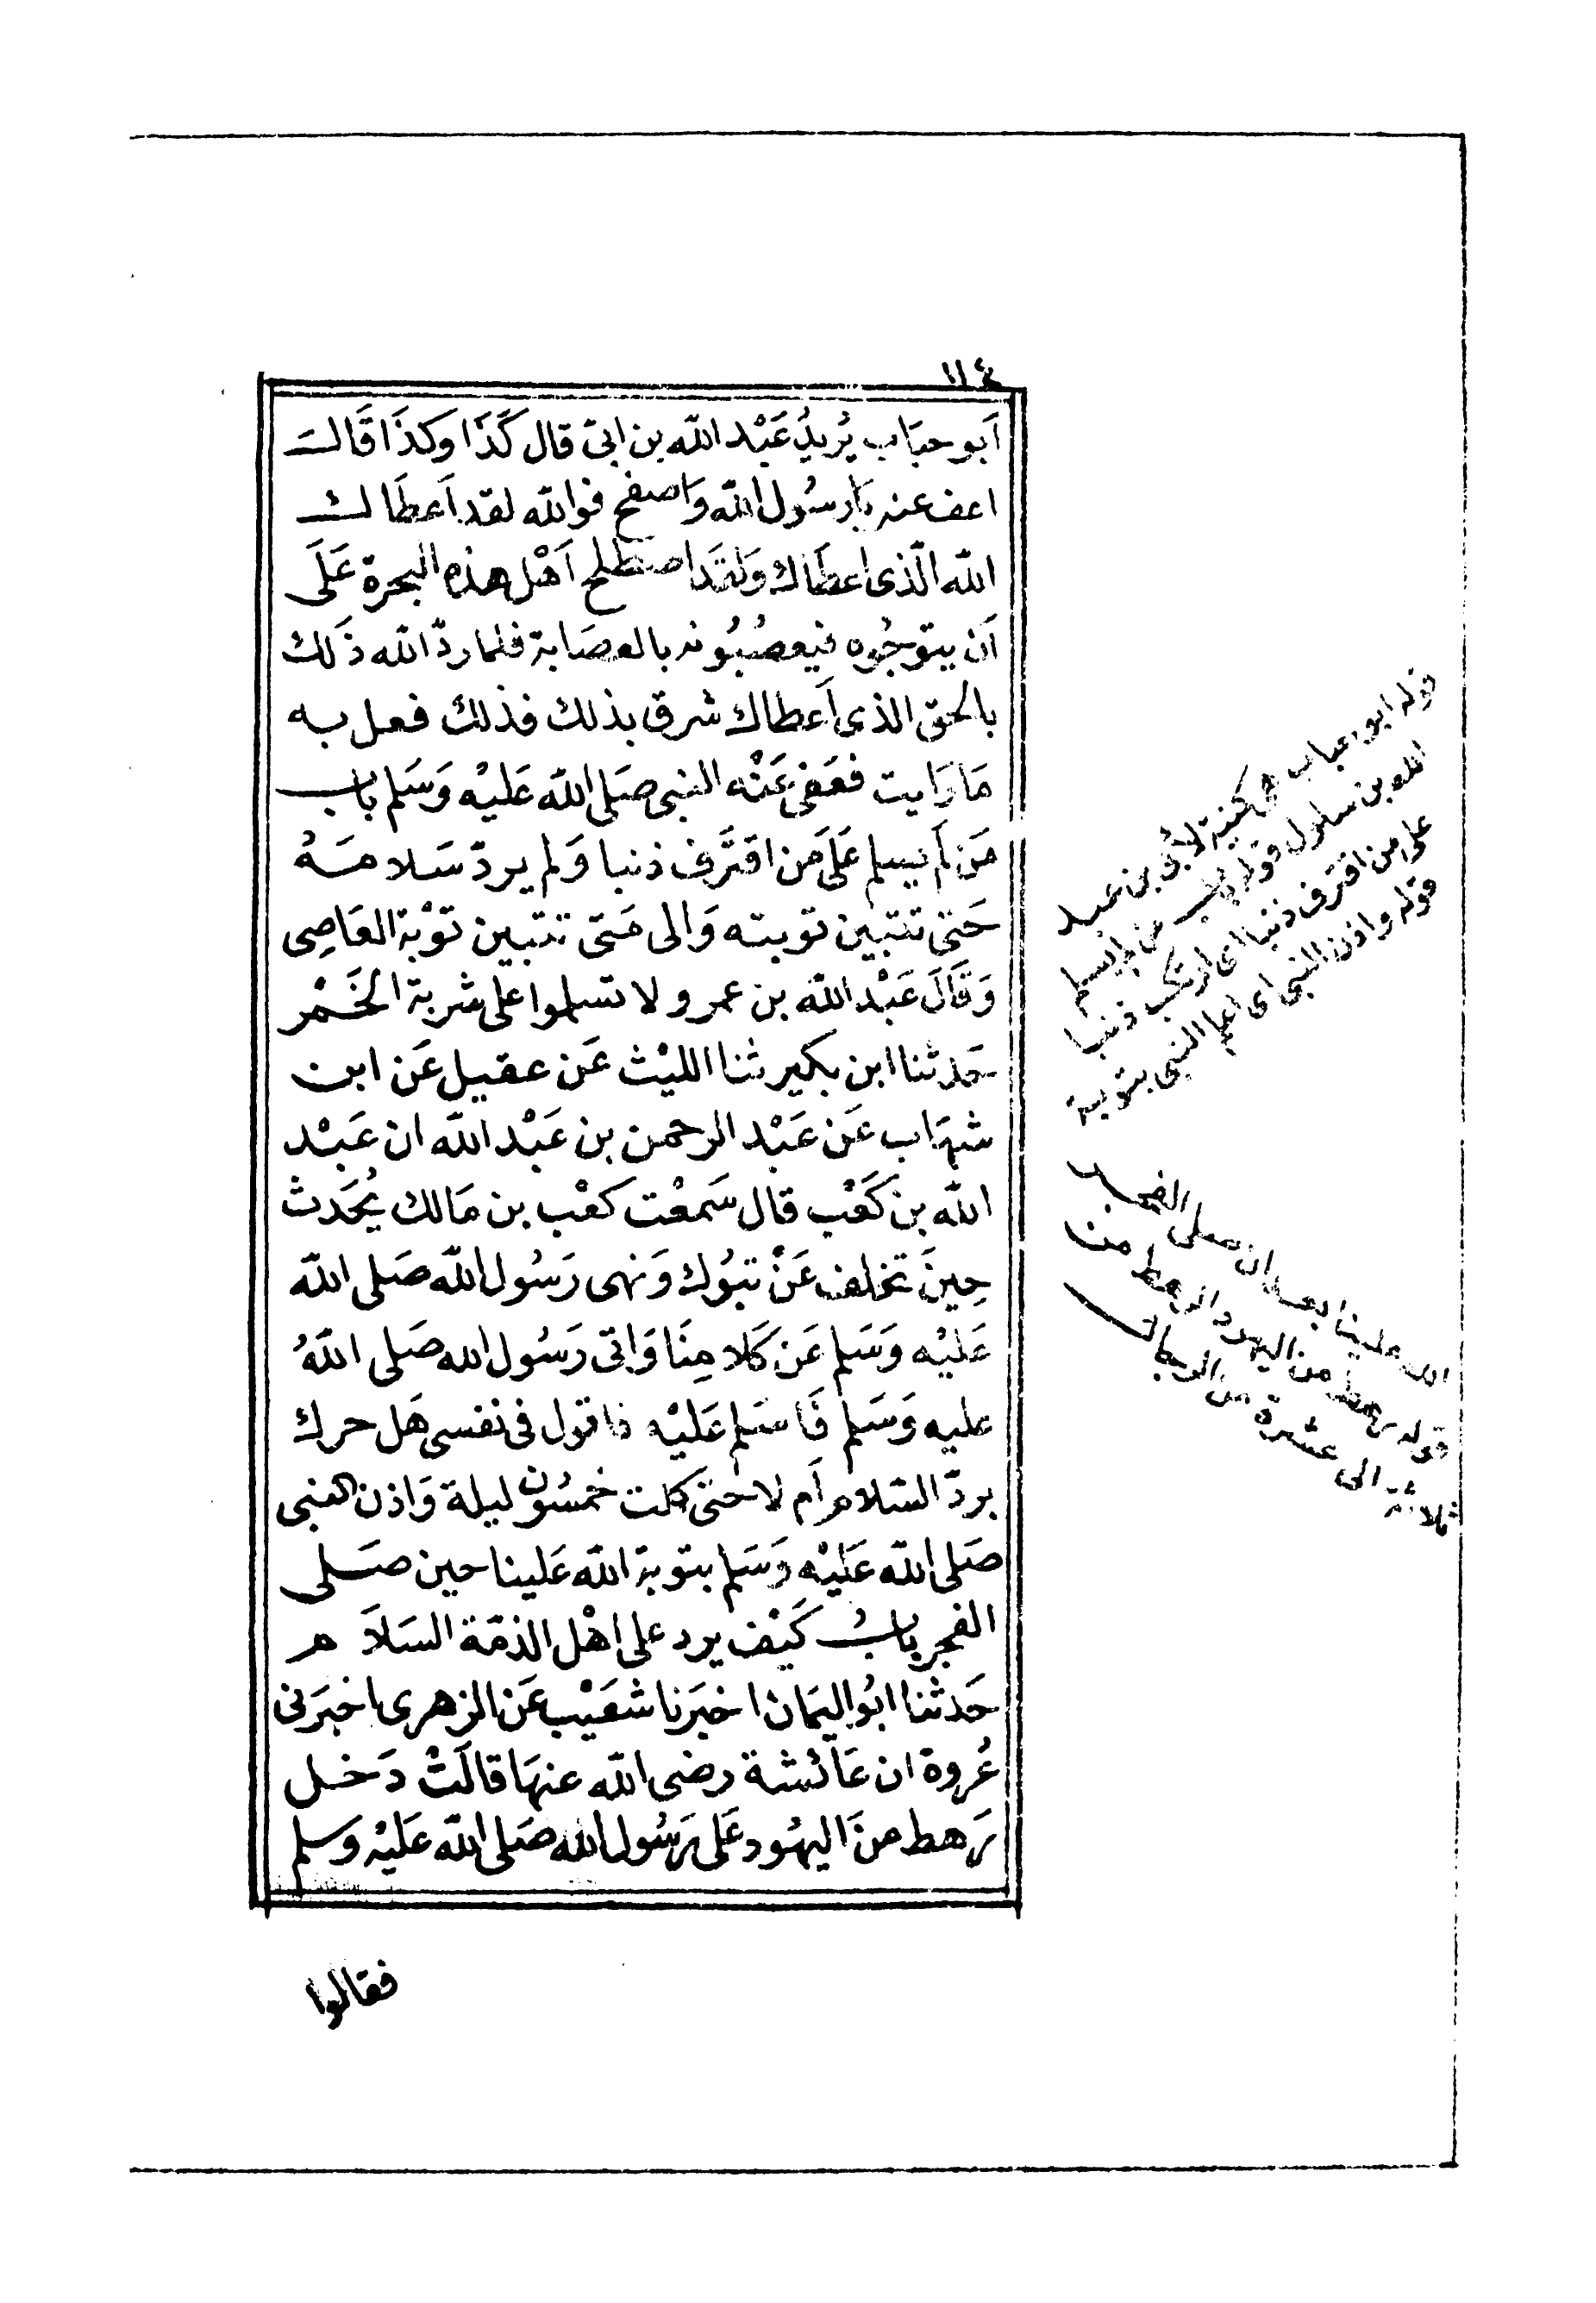 ١١٤
أبو حبَاب يُريدُ عَبْد الله بن ابىّ قال كَذَا وكذَا قَالَ
اعف عنه يَا رسُول الله وَاصفح فوالله لقد أعطَاك
الله الّذى اعطَاك وَلقَد اصطلح أهْل هذه البحرة عَلَى
أن يتوجُوه فيعصبُونه بالعصَابة فلما ردّ الله ذَلك
بالحق الذى أعطاك شرق بذلك فذلك فعل به
مَا رَايت فعَفى عَنْه النبى صَلى الله عَليْه وَسَلم باب
مَن لَم يسلم عَلَى مَن اقتَرَف ذنبا وَلم يردّ سَلامَهُ
حَتى تتبين توبته وَالى مَتى تتبين توْبة العَاصِى
وَقَالَ عَبْد الله بن عمرو لا تسلموا على شربة الخَمْر
حَدثنا ابن بكير ثنا الليْث عَن عقيل عَن ابن
شهَاب عَن عَبْد الرحمن بن عَبْد الله ان عَبْد
الله بن كَعْب قال سَمعْت كعْب بن مَالك يُحَدث
حِينَ تخلف عَنْ تبوُك وَنهى رَسُول الله صَلى الله
عَليْه وَسَلم عَن كَلامِنَا وَاتى رَسُول الله صَلى اللهُ
عليه وَسَلم فَاسَلم عَليْه فاقول فى نفسى هَل حرك
بردّ السّلام أم لا حتىَ كملت خمسُون ليلة وَاذن النبى
صَلى الله عَليْه وَسَلم بتوبة الله عَلينا حين صَلى
الفجر بابُ كَيْف يرد على اهْل الذمّة السَلاَم
حَدثنا ابُو اليمَان اخبَرنا شعَيْب عَن الزهرى اخبَرَنى
عُروة ان عَائشة رضى الله عنهَا قالَتْ دَخل
رَهط منَ اليهُود عَلى رَسُول الله صَلى الله عَليْه وسلم
فقالوا
قوله ابو حباب هى كنية لأبى بن عبد
الله بن سلول قوله باب من لم يسلم
على من اقترف ذنبا اى ارتكب ذنبا
قوله واذن النبى اى اعلم النبى بتوبة
الله علينا بعد ان صلى الفجر
قوله رهط من اليهود الرهط من
ثلاثة الى عشرة من الرجال